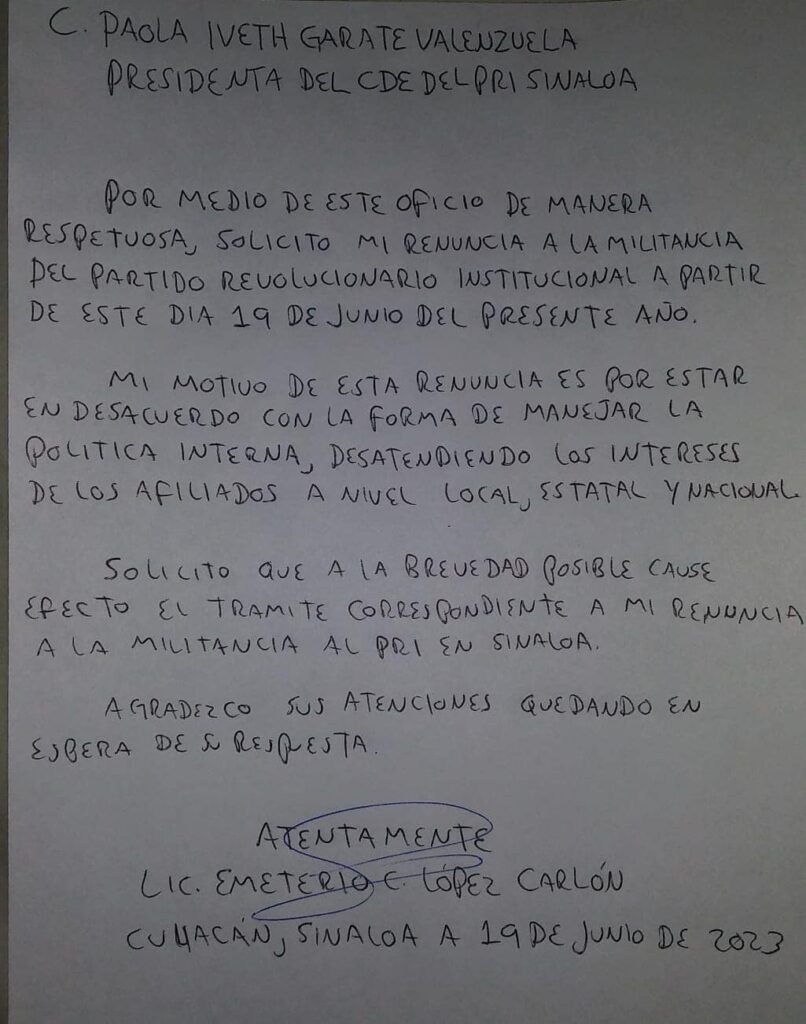 C. PAOLA IVETH GARATE VALENZUELA
PRESIDENTA DEL CDE DEL PRI SINALOA
POR MEDIO DE ESTE OFICIO DE MANERA
RESPETUOSA, SOLICITO MI RENUNCIA A LA MILITANCIA
DEL PARTIDO REVOLUCIONARIO INSTITUCIONAL A PARTIR
DE ESTE DIA 19 DE JUNIO DEL PRESENTE AÑO.
MI MOTIVO DE ESTA RENUNCIA ES POR ESTAR
EN DESACUERDO CON LA FORMA DE MANEJAR LA
POLITICA INTERNA, DESATENDIENDO LOS INTERESES
DE LOS AFILIADOS A NIVEL LOCAL, ESTATAL Y NACIONAL.
SOLICITO QUE A LA BREVEDAD POSIBLE CAUSE
EFECTO EL TRAMITE CORRESPONDIENTE A MI RENUNCIA
A LA MILITANCIA AL PRI EN SINALOA.
AGRADEZCO SUS ATENCIONES QUEDANDO EN
ESPERA DE SU RESPUESTA.
ATENTAMENTE
LIC. EMETERIO C. LÓPEZ CARLÓN
CULIACÁN, SINALOA A 19 DE JUNIO DE 2023